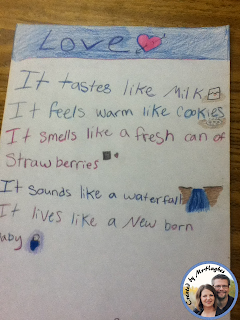 Love
It tastes like Milk
It feels warm like Cookies
It smells like a fresh can of
Strawberries
It sounds like a waterfall
It lives like a New born
Created by MrHughes